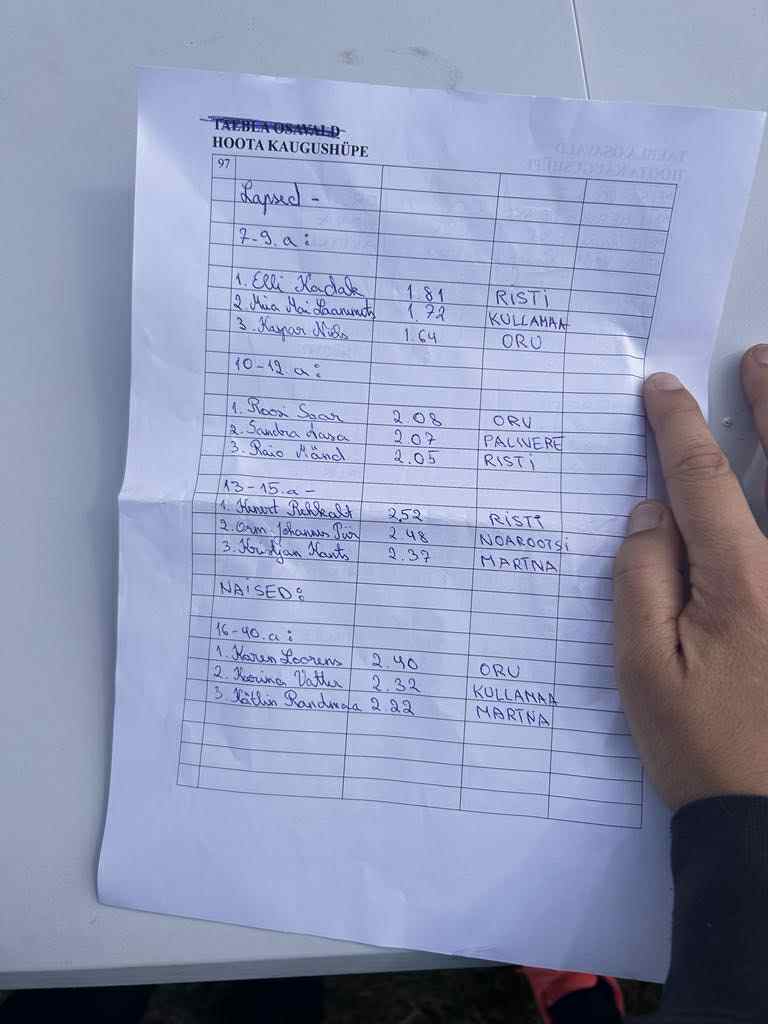 TAEBLA OSAVALD
HOOTA KAUGUSHÜPE
97
Lapsed -
7-9.a:
1. Elli Kadak 1.81 RISTI
2 Miia Mai 1.72 KULLAMAA
3. Kaspar Nils 1.64 ORU
10-12.a:
1. Roosi Saar 2.08 ORU
2. Sandra 2.07 PALIVERE
3. Raio Mänd 2.05 RISTI
13-15.a-
1. 2.52 RISTI
2. Johannes 2.48 NOAROOTSI
3. Kristjan Kants 2.37 MARTNA
NAISED:
16-40.a:
1. Karen Loorens 2.40 ORU
2. 2.32 KULLAMAA
3. Kätlin Randmaa 2.22 MARTNA